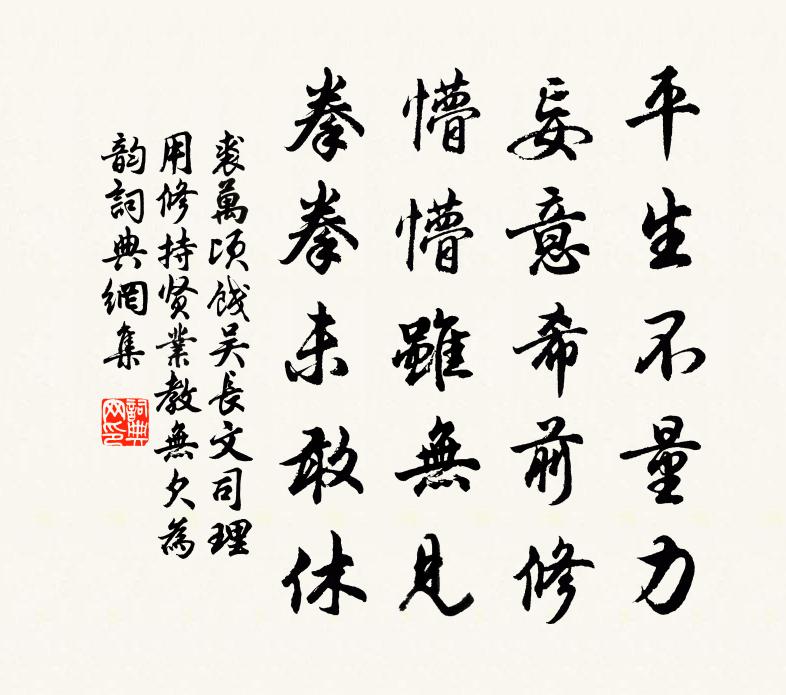 平生不量力
妄意希前修
懵懵雖無見
拳拳未敢休
裘萬頃餞吴長文司理
用修持贤業教無欠為
韵詞典網集
詞典网印